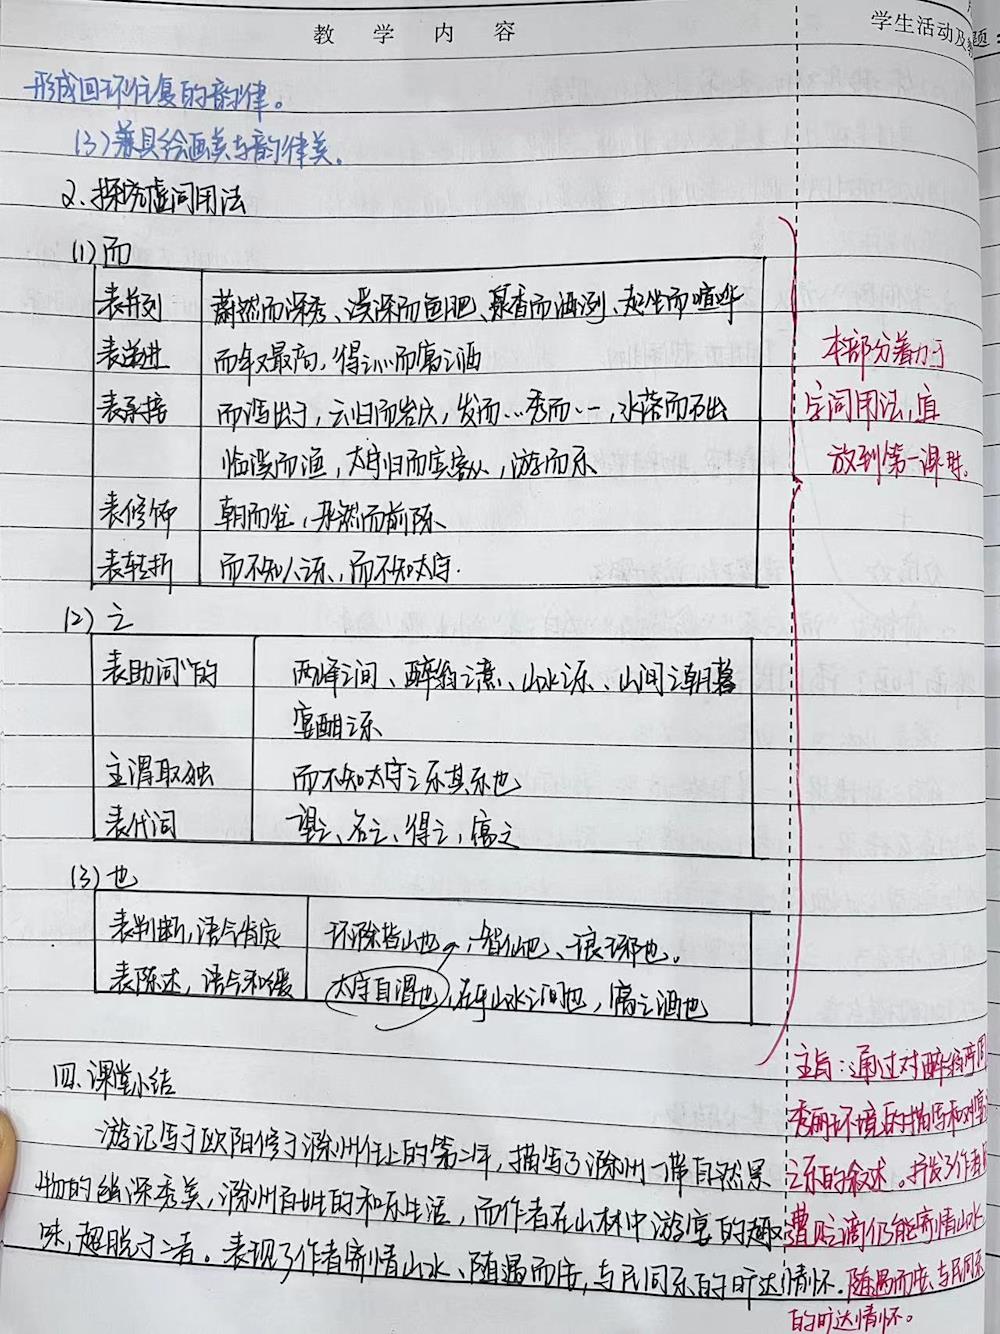 教 学 内 容
学生活动及教
题：
形成回环往复的韵律。
(3)兼具绘画美与韵律美。
2.探究虚词用法
(1)而
表并列 蔚然而深秀、溪深而鱼肥、泉香而酒洌、起坐而喧哗
表递进 而年又最高，得之心而寓之酒
表承接 而泻出于，云归而岩穴，发而…秀而…，水落而石出
临溪而渔，太守归而宾客从，游而乐
表修饰 朝而往，杂然而前陈
表转折 而不知人之乐，而不知太守.
(2)之
表助词"的 两峰之间、醉翁之意、山水之乐、山间之朝暮
宴酣之乐
主谓取独 而不知太守之乐其乐也
表代词 望之、名之、得之，寓之
(3)也
表判断,语气肯定 环滁皆山也，，智仙也、琅琊也。
表陈述，语气和缓 太守自谓也，在乎山水之间也，寓之酒也
本部分着力于
字词用法,宜
放到第一课时。
四.课堂小结
游记写于欧阳修于滁州任上的第二年,描写了滁州一带自然景
物的幽深秀美,滁州百姓的和乐生活，而作者在山林中游宴的趣
味,超脱于二者。表现了作者寄情山水、随遇而安,与民同乐的旷达情怀.
主旨：通过对醉翁亭
秀丽环境的描写和对宴
之乐的叙述。抒发了作者
遭贬谪仍能寄情山水
随遇而安、与民同乐
的旷达情怀。